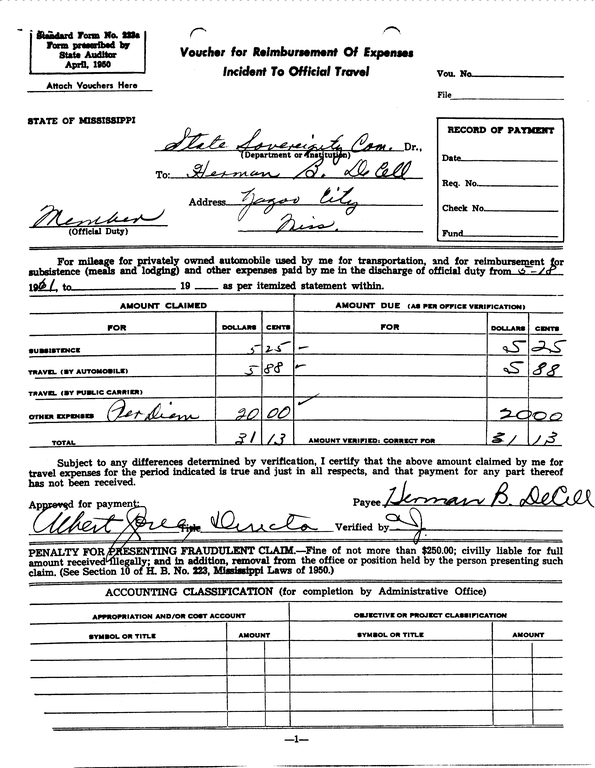 Standard Form No. 223a
Form prescribed by
State Auditor
April, 1950
Attach Vouchers Here
Voucher for Reimbursement Of Expenses
Incident To Official Travel
Vou. No.
File
STATE OF MISSISSIPPI
State Sovereignty Com. Dr.,
(Department or Institution)
To: Herman B. DeCell
Address Yazoo City
Miss.
Member
(Official Duty)
RECORD OF PAYMENT
Date
Req. No.
Check No.
Fund
For mileage for privately owned automobile used by me for transportation, and for reimbursement for
subsistence (meals and lodging) and other expenses paid by me in the discharge of official duty from 5-18
1961, to 19 as per itemized statement within.
AMOUNT CLAIMED AMOUNT DUE (AS PER OFFICE VERIFICATION)
FOR DOLLARS CENTS FOR DOLLARS CENTS
SUBSISTENCE 5 25 5 25
TRAVEL (BY AUTOMOBILE) 5 88 5 88
TRAVEL (BY PUBLIC CARRIER)
OTHER EXPENSES Per Diem 20 00 20 00
TOTAL 31 13 AMOUNT VERIFIED: CORRECT FOR 31 13
Subject to any differences determined by verification, I certify that the above amount claimed by me for
travel expenses for the period indicated is true and just in all respects, and that payment for any part thereof
has not been received.
Approved for payment: Payee Herman B. DeCell
Albert Jones Title Director Verified by
PENALTY FOR PRESENTING FRAUDULENT CLAIM.—Fine of not more than $250.00; civilly liable for full
amount received illegally; and in addition, removal from the office or position held by the person presenting such
claim. (See Section 10 of H. B. No. 223, Mississippi Laws of 1950.)
ACCOUNTING CLASSIFICATION (for completion by Administrative Office)
APPROPRIATION AND/OR COST ACCOUNT OBJECTIVE OR PROJECT CLASSIFICATION
SYMBOL OR TITLE AMOUNT SYMBOL OR TITLE AMOUNT
—1—